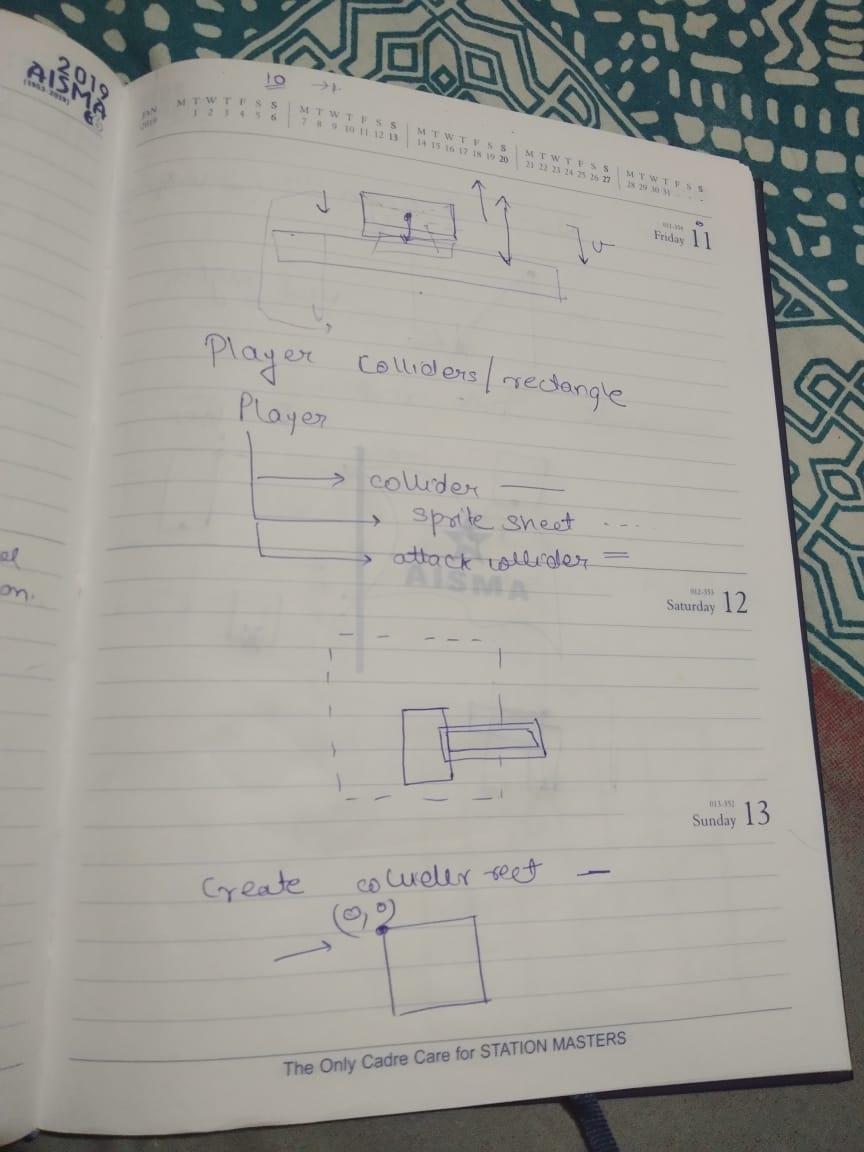 2019
AISMA
(1953-2019)
10 →
JAN
2019
M T W T F S S M T W T F S S M T W T F S S M T W T F S S M T W T F S S
1 2 3 4 5 6 7 8 9 10 11 12 13 14 15 16 17 18 19 20 21 22 23 24 25 26 27 28 29 30 31 . . .
011-354
Friday 11
g
v
Player Colliders/rectangle
Player
→ collider —
→ sprite sheet ----
→ attack collider =
AISMA
el
on.
012-353
Saturday 12
013-352
Sunday 13
Create collider rect —
(0,0)
The Only Cadre Care for STATION MASTERS